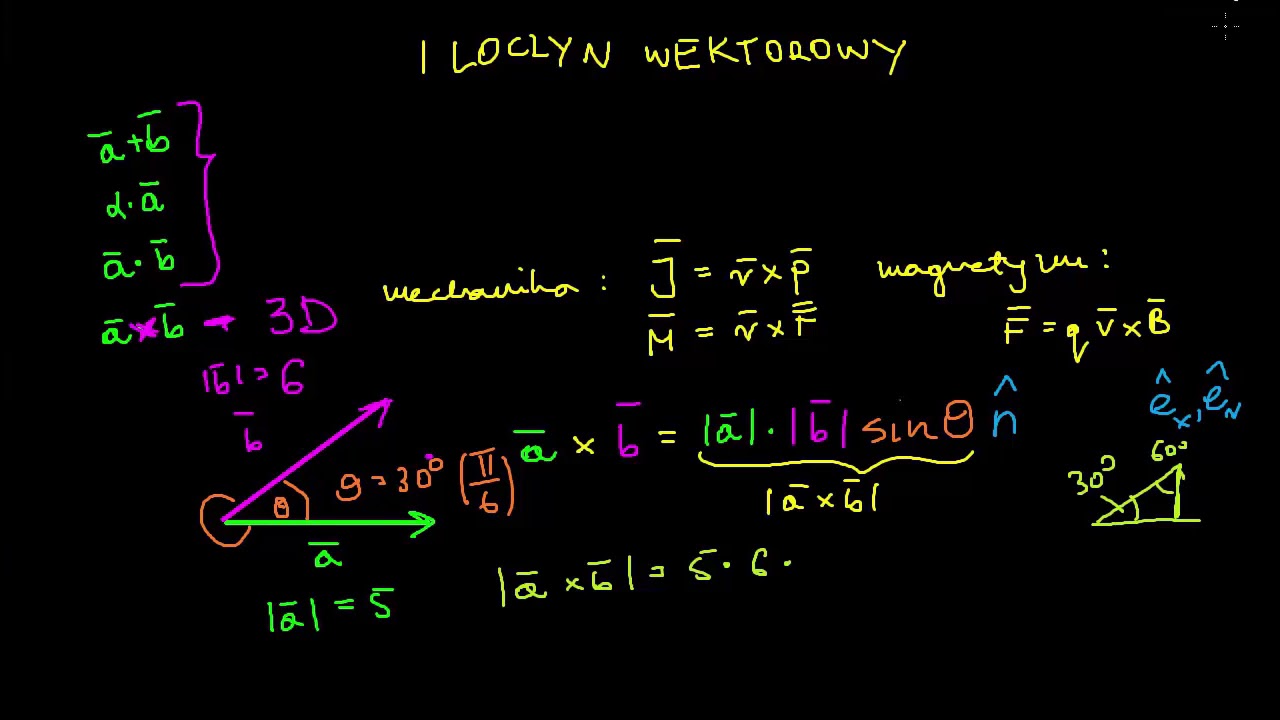 ILOCZYN WEKTOROWY
a̅ + b̅
α · a̅
a̅ · b̅
a̅ × b̅ → 3D
mechanika : J̅ = r̅ × p̅
M̅ = r̅ × F̅
magnetyzm :
F̅ = q v̅ × B̅
|b̅| = 6
b̅
θ = 30° (π/6)
θ
a̅
|a̅| = 5
a̅ × b̅ = |a̅| · |b̅| sin θ n̂
|a̅ × b̅|
ê_x, ê_N
30° 60°
|a̅ × b̅| = 5 · 6 ·